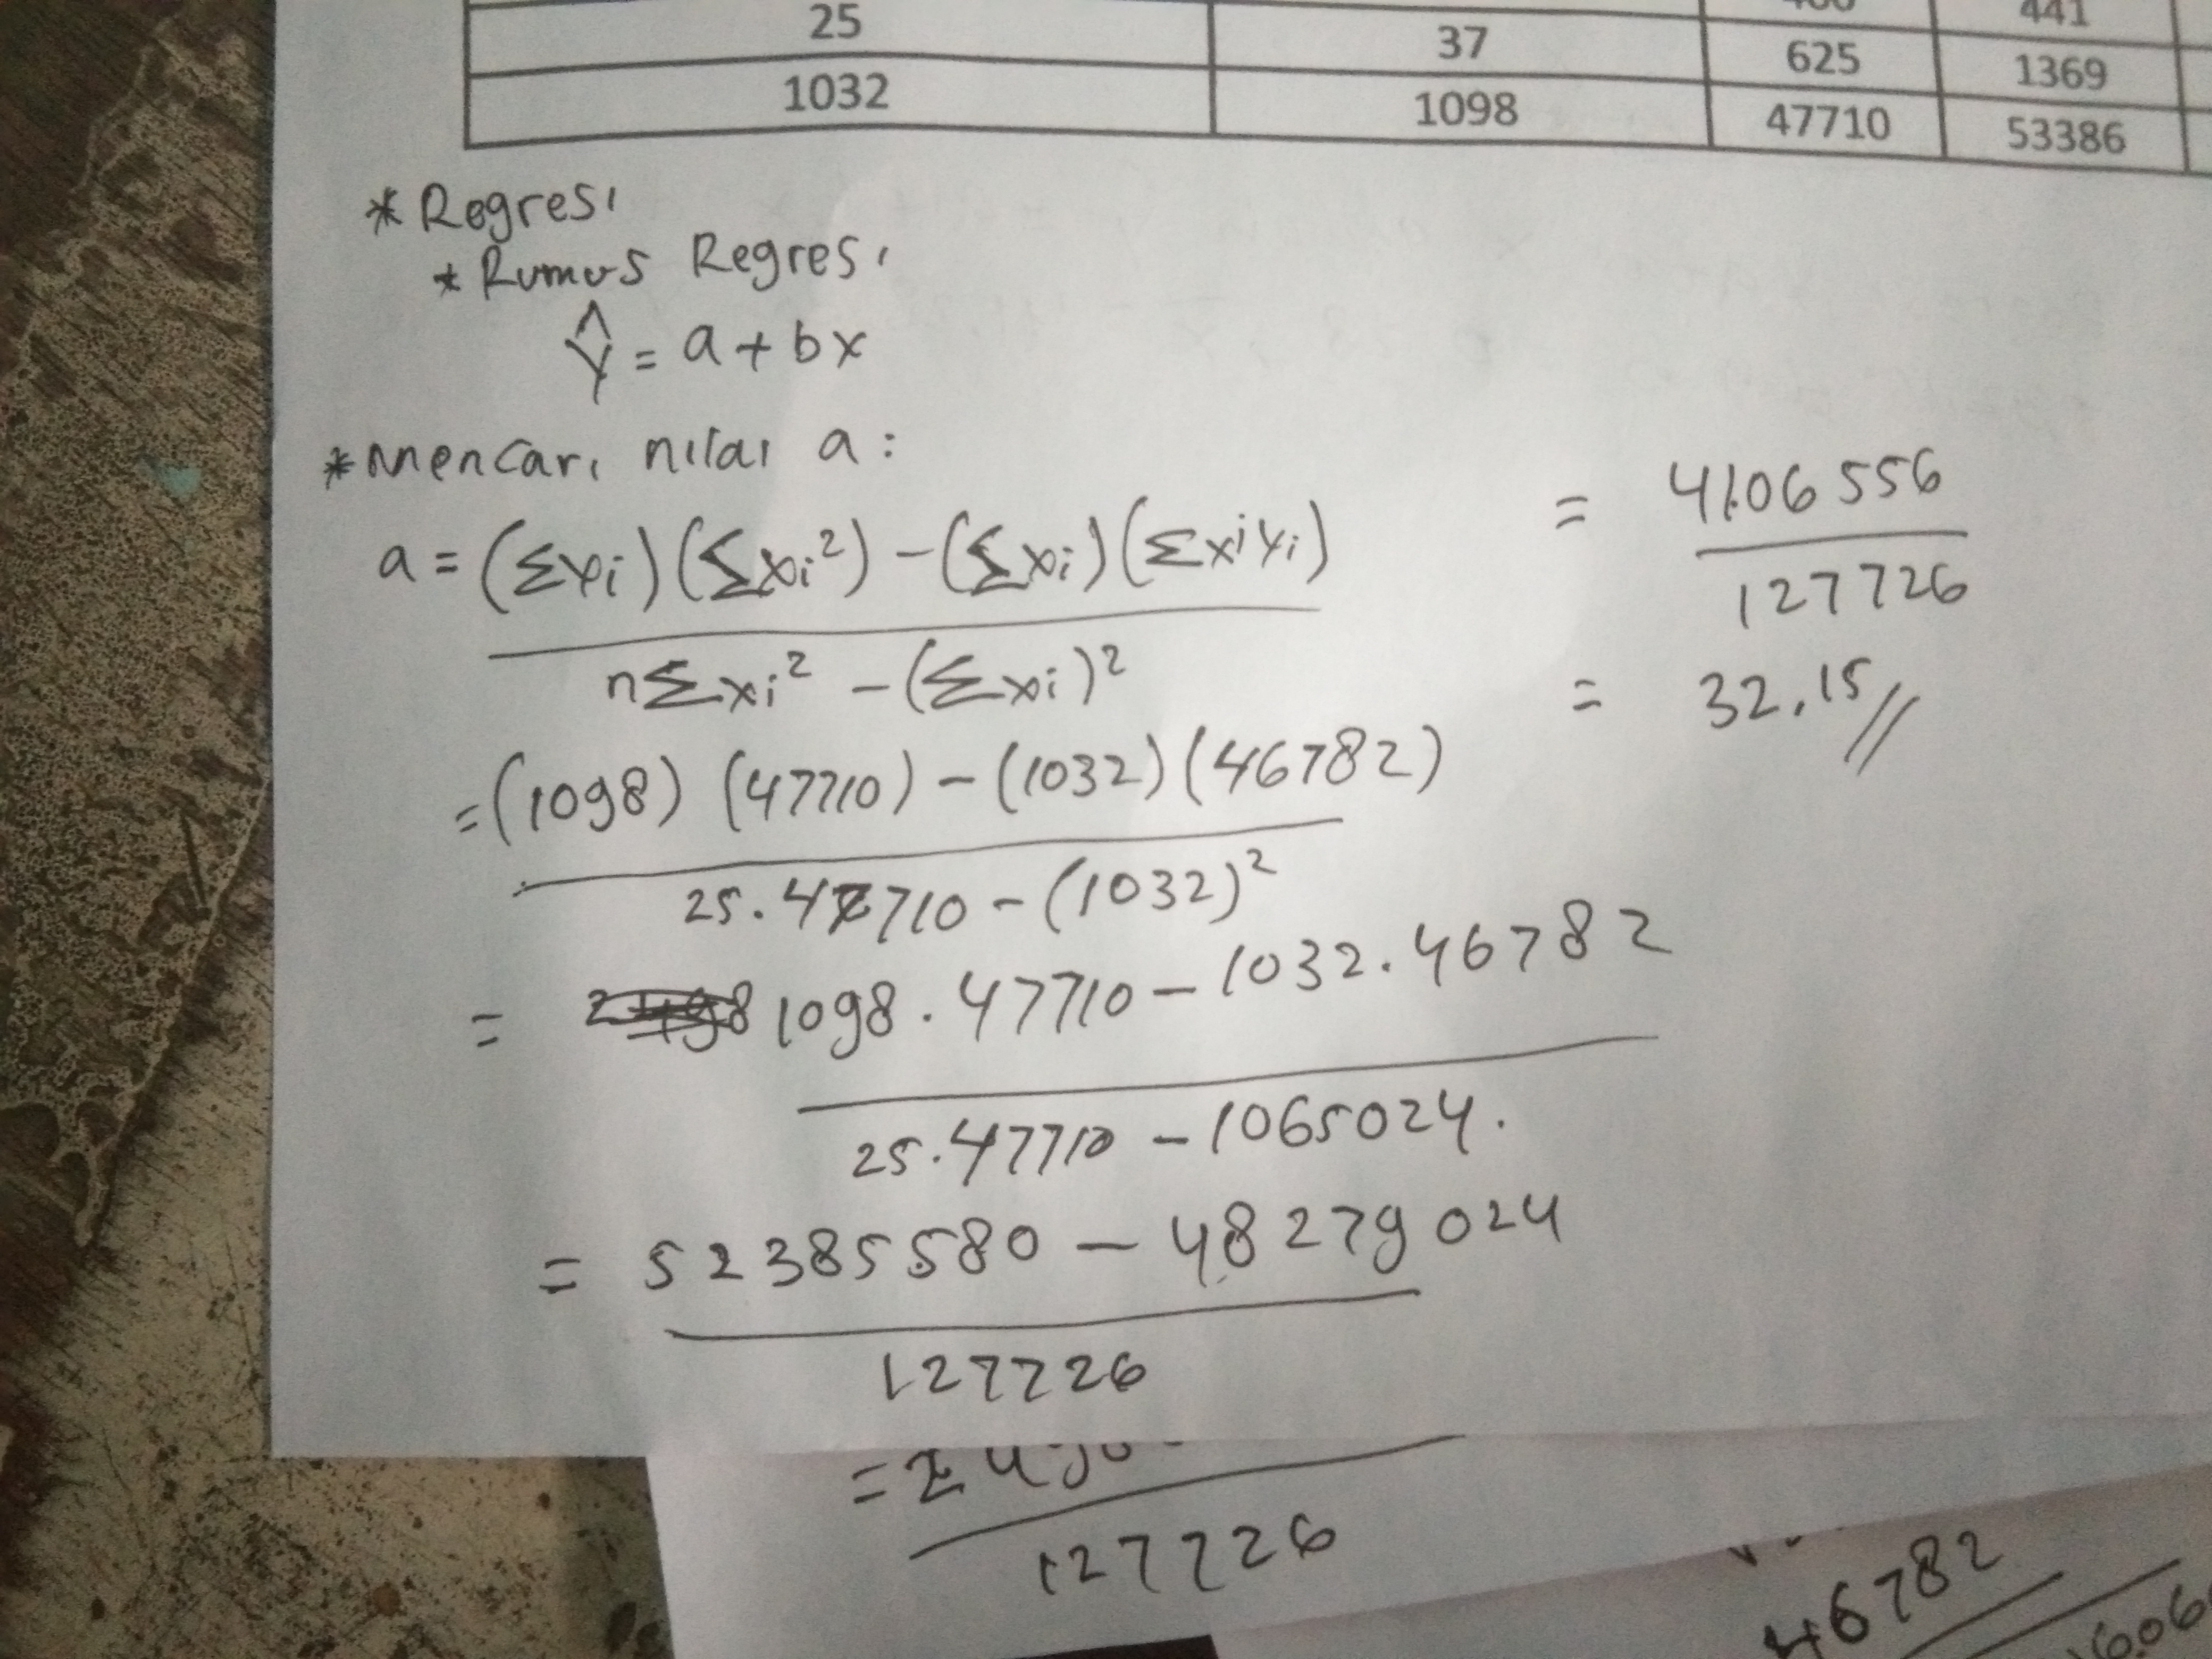 441
25 37 625 1369
1032 1098 47710 53386
* Regresi
* Rumus Regresi
Ŷ = a + bx
* Mencari nilai a :
a = (Σyi) (Σxi²) - (Σxi) (Σxiyi)
nΣxi² - (Σxi)²
= (1098) (47710) - (1032) (46782)
25.47710 - (1032)²
= 1098 . 47710 - 1032 . 46782
25.47710 - 1065024.
= 52385580 - 48279024
127726
= 4106556
127726
= 32,15 //
127726
46782